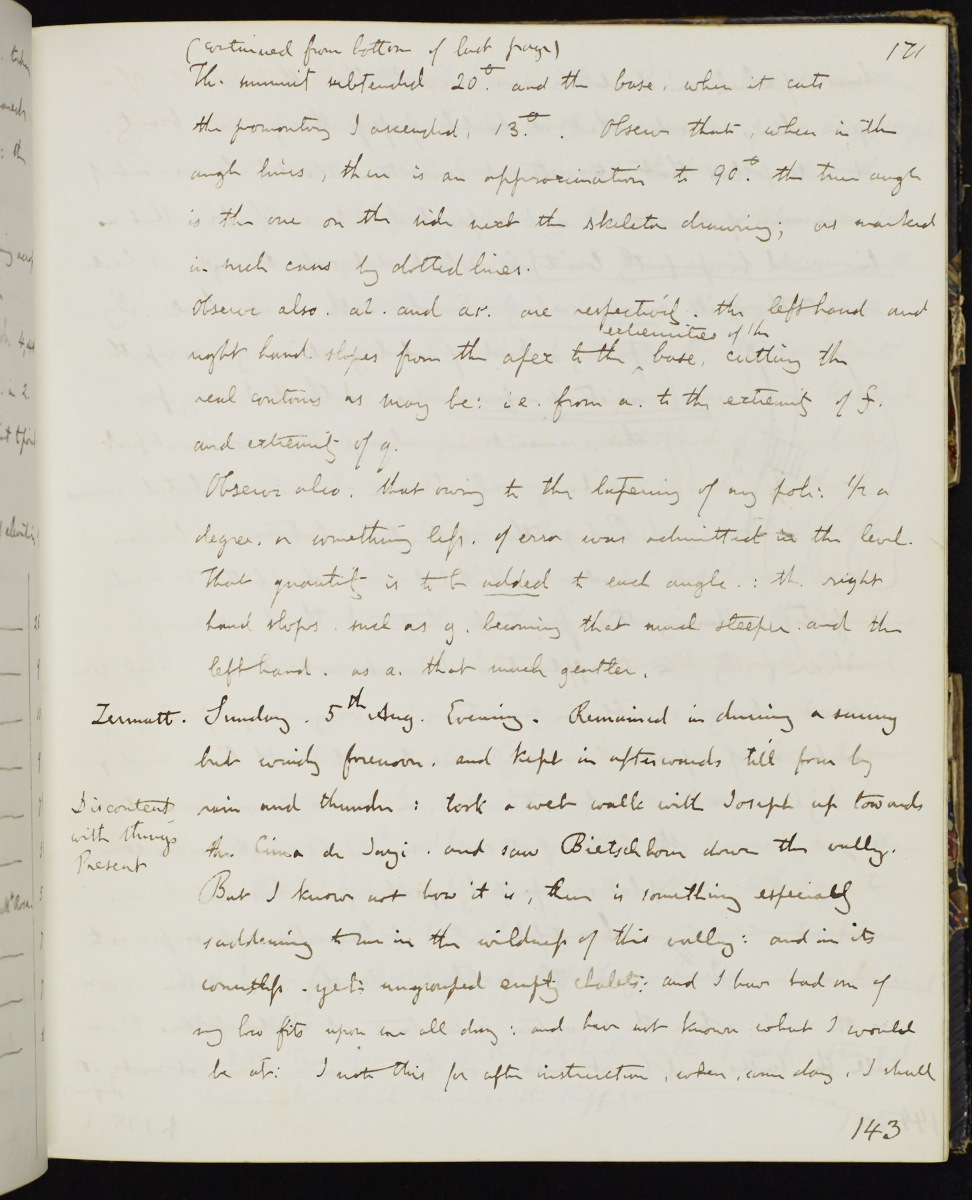 171
(continued from bottom of last page)
The summit subtended 20°. and the base, when it cuts
the promontory I ascended, 13°. Observe that, when in the
angle lines, there is an approximation to 90°. the true angle
is the one on the side next the skeleton drawing; as marked
in such cases by dotted lines.
Observe also. al. and ar. are respectively. the left hand and
extremities of the
right hand. slopes from the apex to the ^ base, cutting the
real contours as may be: i.e. from a. to the extremity of f.
and extremity of g.
Observe also. that owing to the loosening of my pole: 1/2 a
degree. or something less. of error was admitted in the level.
That quantity is to be added to each angle: the right
hand slopes. such as g. becoming that much steeper. and the
left hand. as a. that much gentler.
Zermatt. Sunday. 5th Aug. Evening. Remained in during a sunny
but windy forenoon. and kept in afterwards till four by
Discontent
with things
Present
rain and thunder: took a wet walk with Joseph up towards
the Cima de Jazi. and saw Bietschhorn down the valley.
But I know not how it is, there is something especially
saddening to me in the wildness of this valley: and in its
countless. yet: ungrouped empty chalets: and I have had one of
my low fits upon me all day: and have not known what I would
be at: I note this for after instruction, when, some day, I shall
143